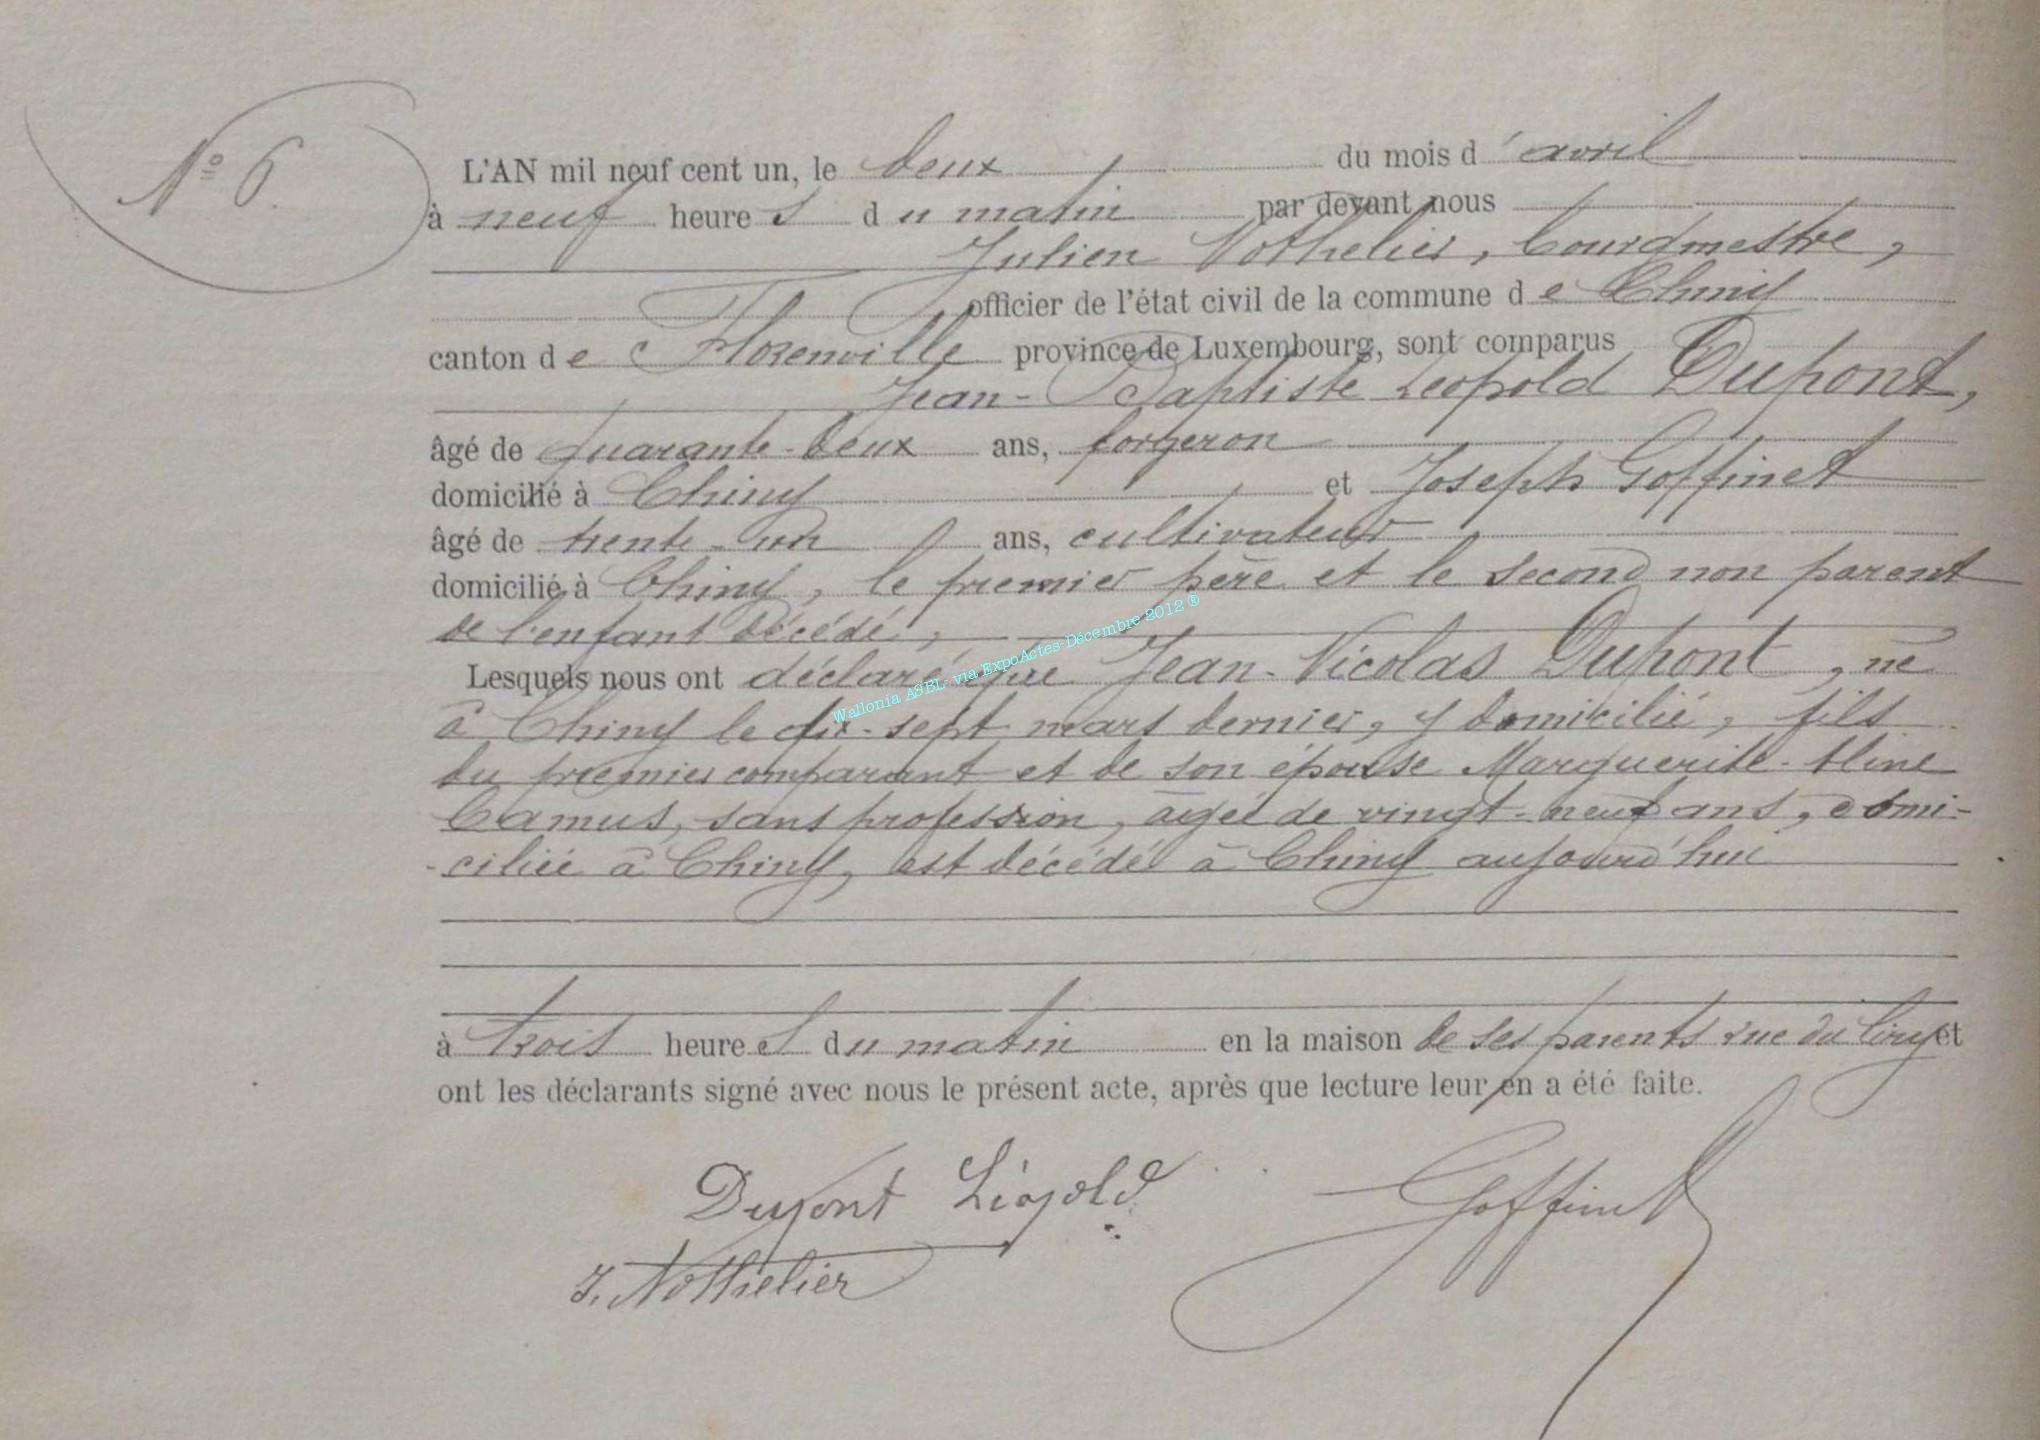 N° 6.
L'AN mil neuf cent un, le deux du mois d'avril
à neuf heures du matin par devant nous
Julien Nothelier, bourgmestre,
officier de l'état civil de la commune de Chiny
canton de Florenville province de Luxembourg, sont comparus
Jean-Baptiste Léopold Dupont,
âgé de quarante-deux ans, forgeron
domicilié à Chiny et Joseph Goffinet
âgé de trente-un ans, cultivateur
domicilié à Chiny, le premier père et le second non parent
de l'enfant décédé,
Lesquels nous ont déclaré que Jean-Nicolas Dupont, né
à Chiny le dix-sept mars dernier, y domicilié, fils
du premier comparant et de son épouse Marguerite-Aline
Camus, sans profession, âgée de vingt-neuf ans, domi-
-ciliée à Chiny, est décédé à Chiny aujourd'hui
à trois heures du matin en la maison de ses parents rue du et
ont les déclarants signé avec nous le présent acte, après que lecture leur en a été faite.
Dupont Léopold Goffinet
J. Nothelier
Wallonia ASBL via ExpoActes-Décembre 2012 ®